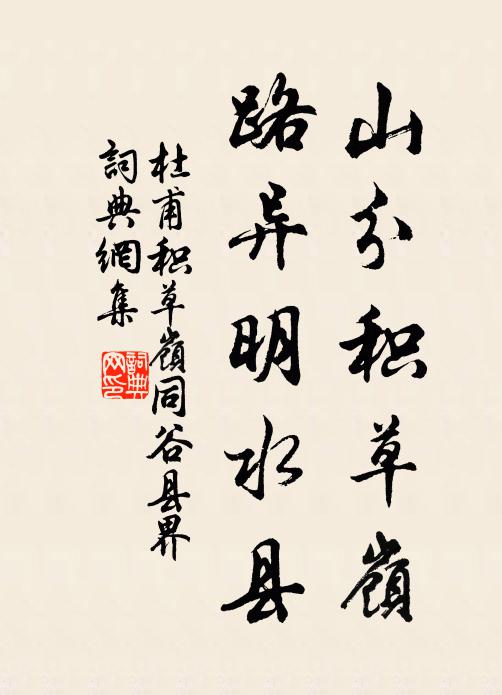 山分积草嶺
路异明水县
杜甫积草嶺同谷县界
詞典網集
詞典
网印